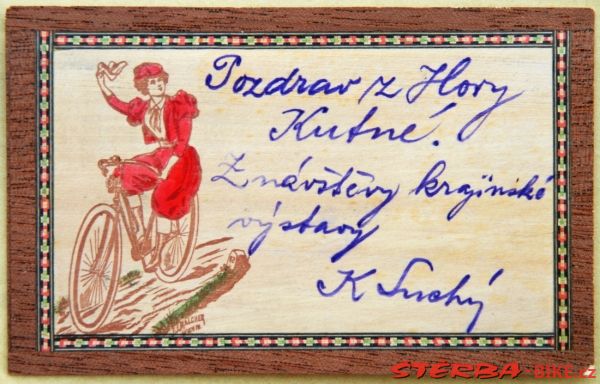 Pozdrav z Hory
Kutné.
Z návštěvy krajinské
výstavy
K Suchý
ŠTĚRBA-BIKE.cz